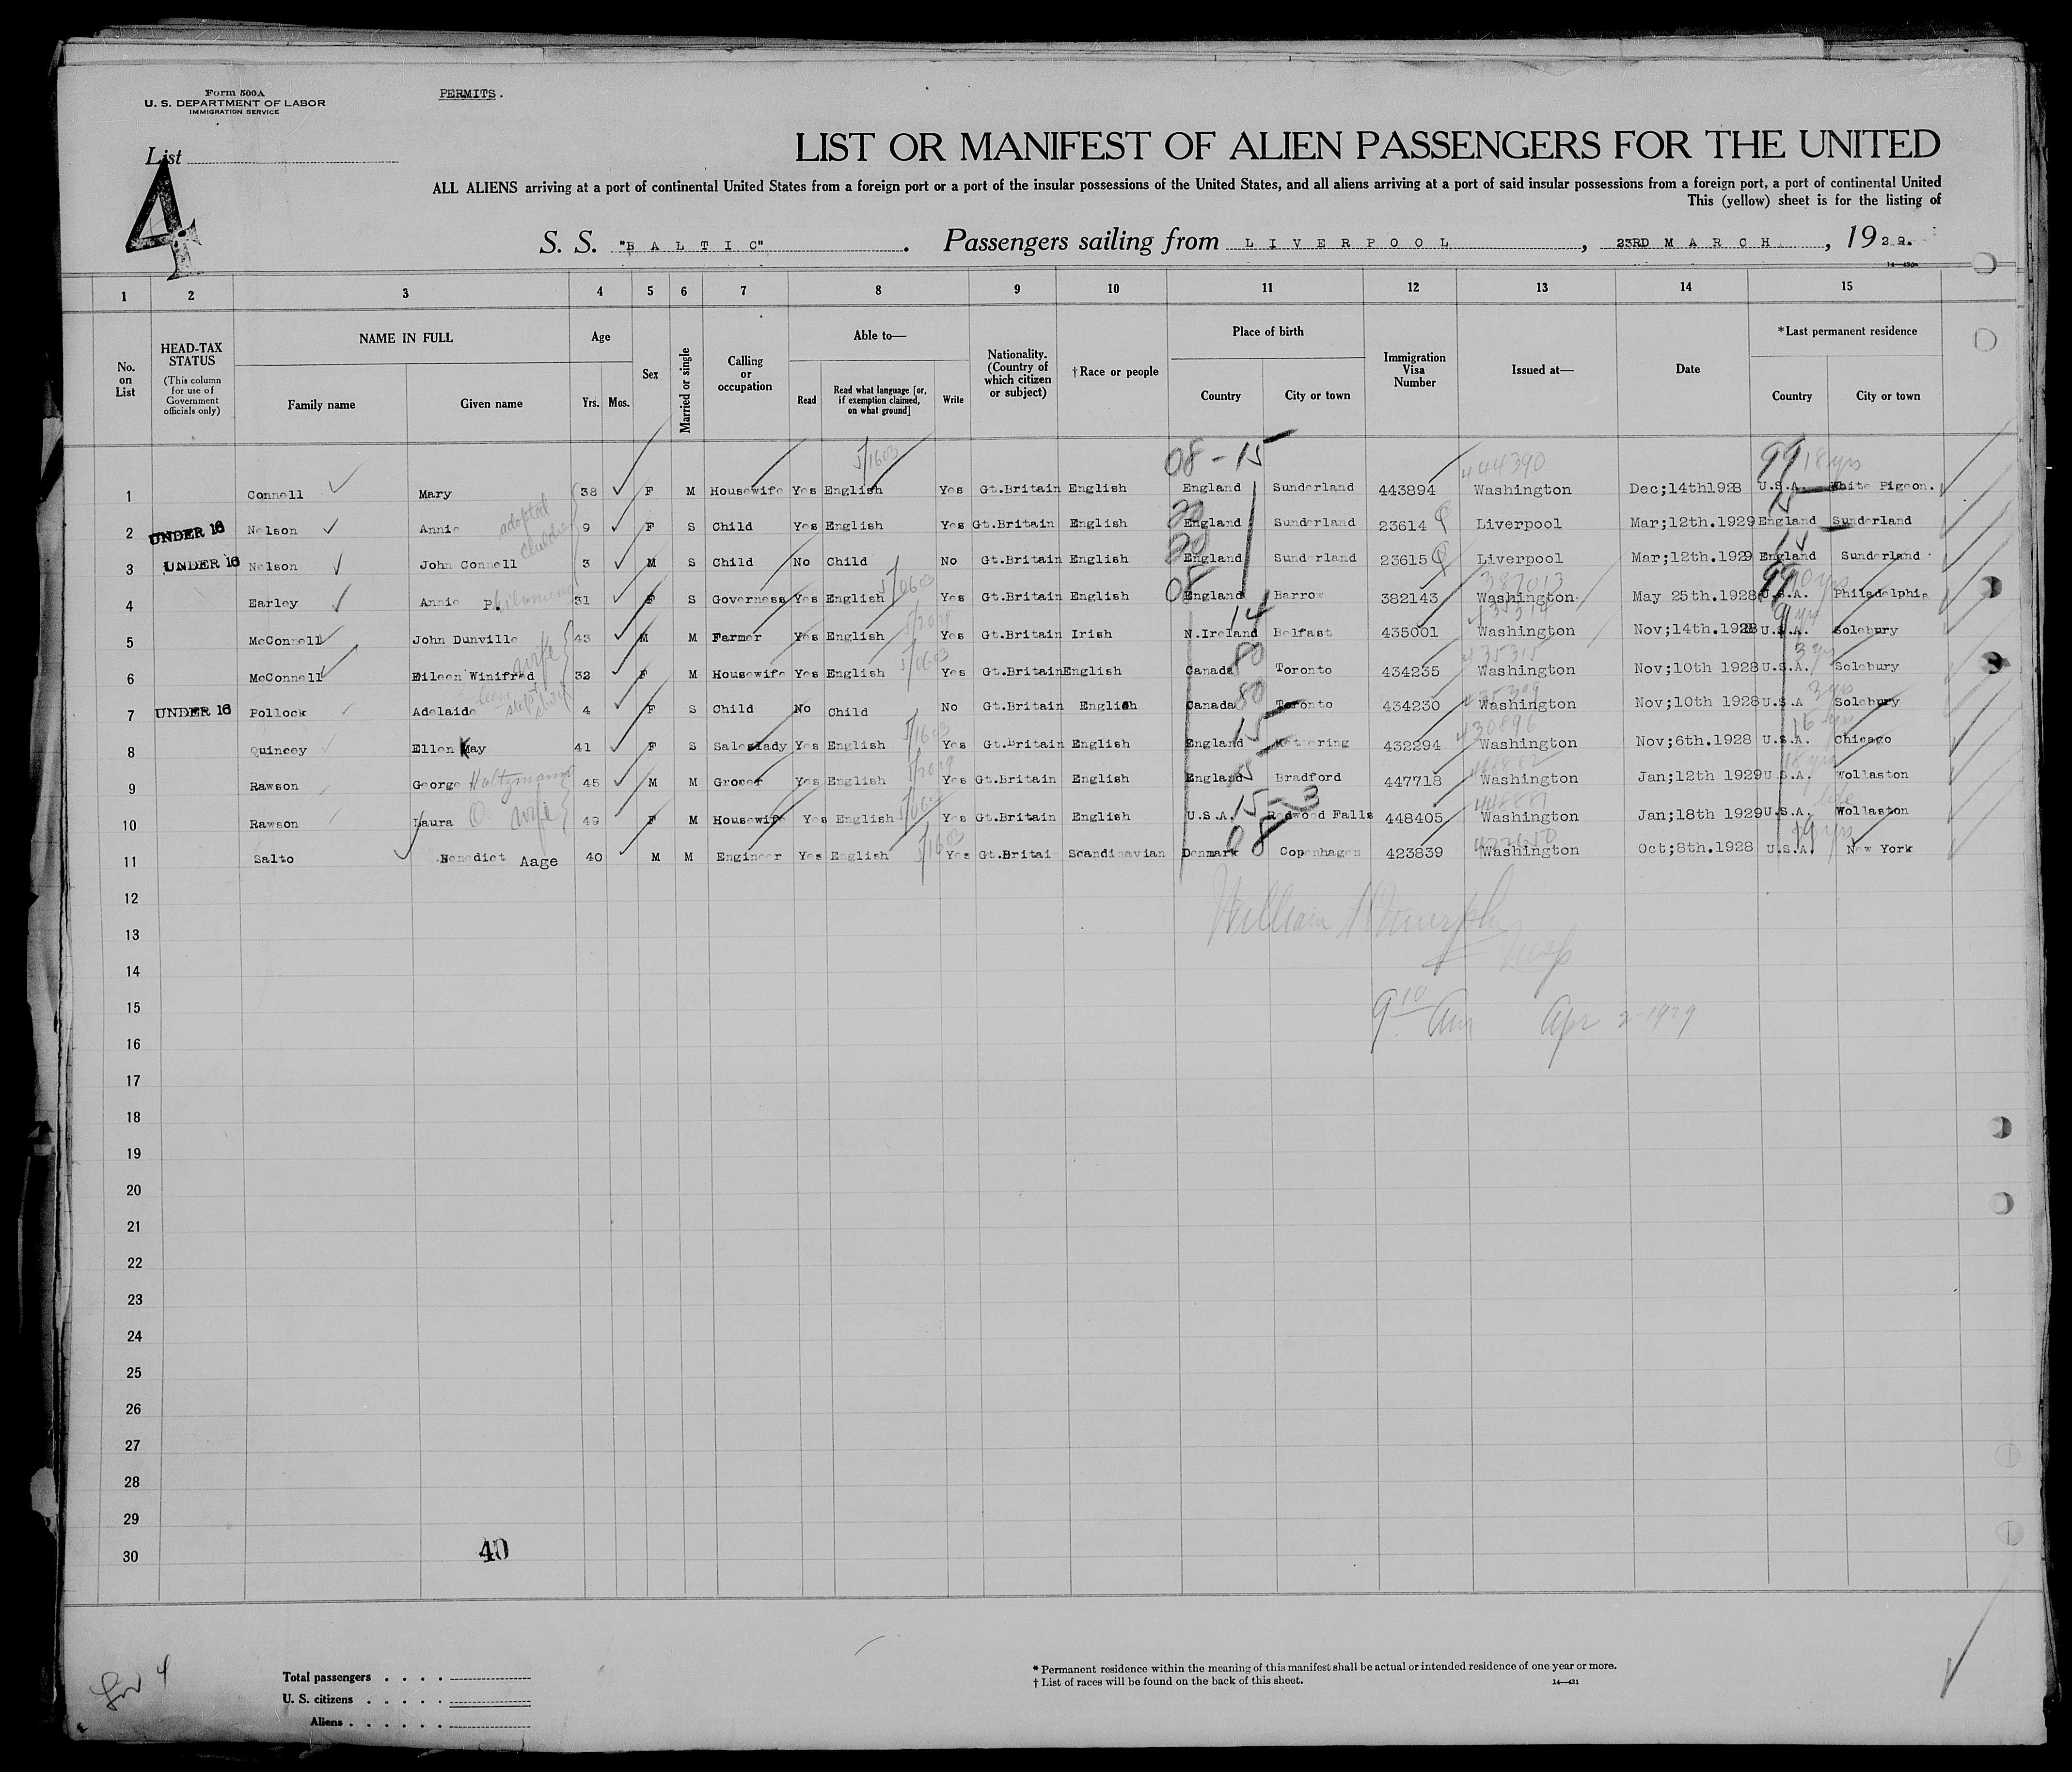 Form 500A
U. S. DEPARTMENT OF LABOR
IMMIGRATION SERVICE
PERMITS.
List
4
LIST OR MANIFEST OF ALIEN PASSENGERS FOR THE UNITED
ALL ALIENS arriving at a port of continental United States from a foreign port or a port of the insular possessions of the United States, and all aliens arriving at a port of said insular possessions from a foreign port, a port of continental United
This (yellow) sheet is for the listing of
S. S. "BALTIC". Passengers sailing from LIVERPOOL, 23RD MARCH, 1929.
14—430a
1 2 3 4 5 6 7 8 9 10 11 12 13 14 15
No. on List
HEAD-TAX STATUS
(This column for use of Government officials only)
NAME IN FULL
Family name Given name
Age
Yrs. Mos.
Sex
Married or single
Calling or occupation
Able to—
Read
Read what language [or, if exemption claimed, on what ground]
Write
Nationality. (Country of which citizen or subject)
†Race or people
Place of birth
Country City or town
Immigration Visa Number
Issued at—
Date
*Last permanent residence
Country City or town
5/1603 08-15 444390 99 18 yrs
1 Connell Mary 38 F M Housewife Yes English Yes Gt.Britain English England Sunderland 443894 Washington Dec;14th1928 U.S.A. White Pigeon.
adopted children
2 UNDER 16 Nelson Annie 9 F S Child Yes English Yes Gt.Britain English England Sunderland 23614 Liverpool Mar;12th.1929 England Sunderland
3 UNDER 16 Nelson John Connell 3 M S Child No Child No Gt.Britain English England Sunderland 23615 Liverpool Mar;12th.1929 England Sunderland
5/0603 387013 99 10 yrs
4 Earley Annie P. 31 F S Governess Yes English Yes Gt.Britain English England Barrow 382143 Washington May 25th.1928 U.S.A. Philadelphia
14
5 McConnell John Dunville 43 M M Farmer Yes English Yes Gt.Britain Irish N.Ireland Belfast 435001 Washington Nov;14th.1928 U.S.A. Solebury
wife 5/0603 80 435315 3 yrs
6 McConnell Eileen Winifred 32 F M Housewife Yes English Yes Gt.Britain English Canada Toronto 434235 Washington Nov;10th 1928 U.S.A. Solebury
step child 80 3 yrs
7 UNDER 16 Pollock Adelaide 4 F S Child No Child No Gt.Britain English Canada Toronto 434230 Washington Nov;10th 1928 U.S.A Solebury
5/1603 15 430896 16 yrs
8 Quincey Ellen May 41 F S Saleslady Yes English Yes Gt.Britain English England Kettering 432294 Washington Nov;6th.1928 U.S.A. Chicago
Holtzmann 18 yrs
9 Rawson George 45 M M Grocer Yes English Yes Gt.Britain English England Bradford 447718 Washington Jan;12th 1929 U.S.A. Wollaston
O wife 15-3 448881 life
10 Rawson Laura 49 F M Housewife Yes English Yes Gt.Britain English U.S.A. Redwood Falls 448405 Washington Jan;18th 1929 U.S.A. Wollaston
5/1603 08 423650
11 Salto Benedict Aage 40 M M Engineer Yes English Yes Gt.Britai Scandinavian Denmark Copenhagen 423839 Washington Oct;8th.1928 U.S.A. New York
12
William Murphy
13
Insp
14
15
9 10 Am Apr 2-1929
16
17
18
19
20
21
22
23
24
25
26
27
28
29
30
40
4
Total passengers
U. S. citizens
Aliens
* Permanent residence within the meaning of this manifest shall be actual or intended residence of one year or more.
† List of races will be found on the back of this sheet.
14—431